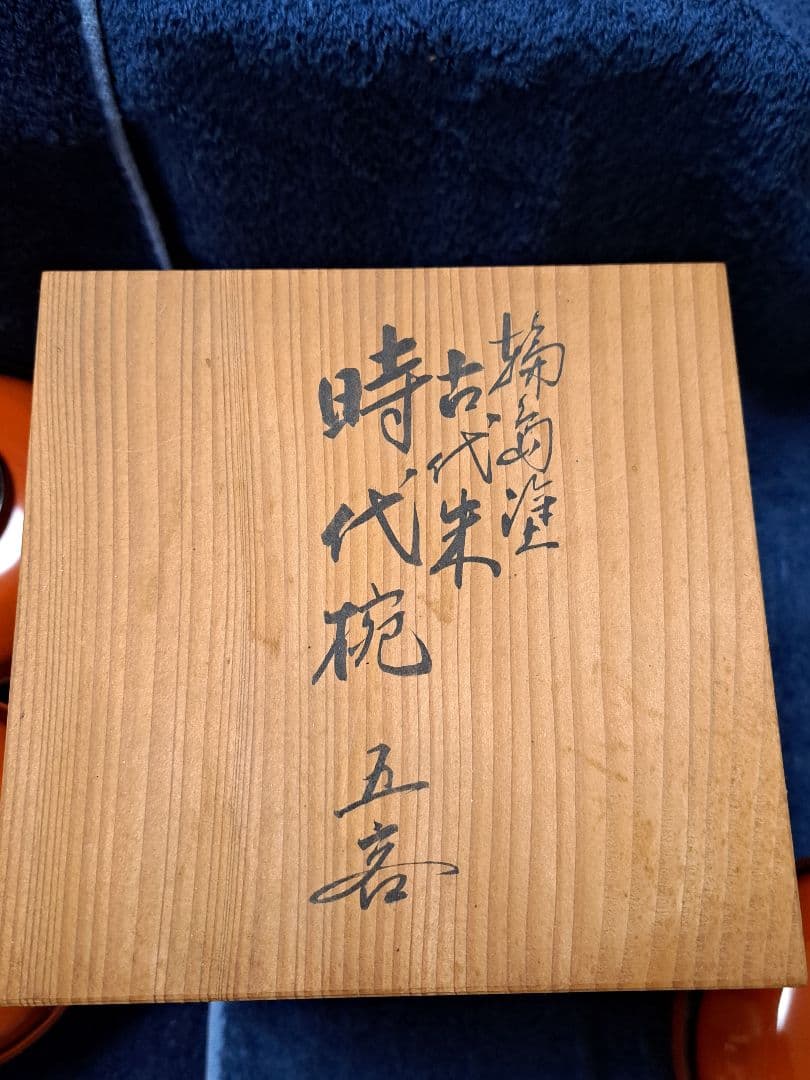 輪島塗
古代朱
時代椀 五客